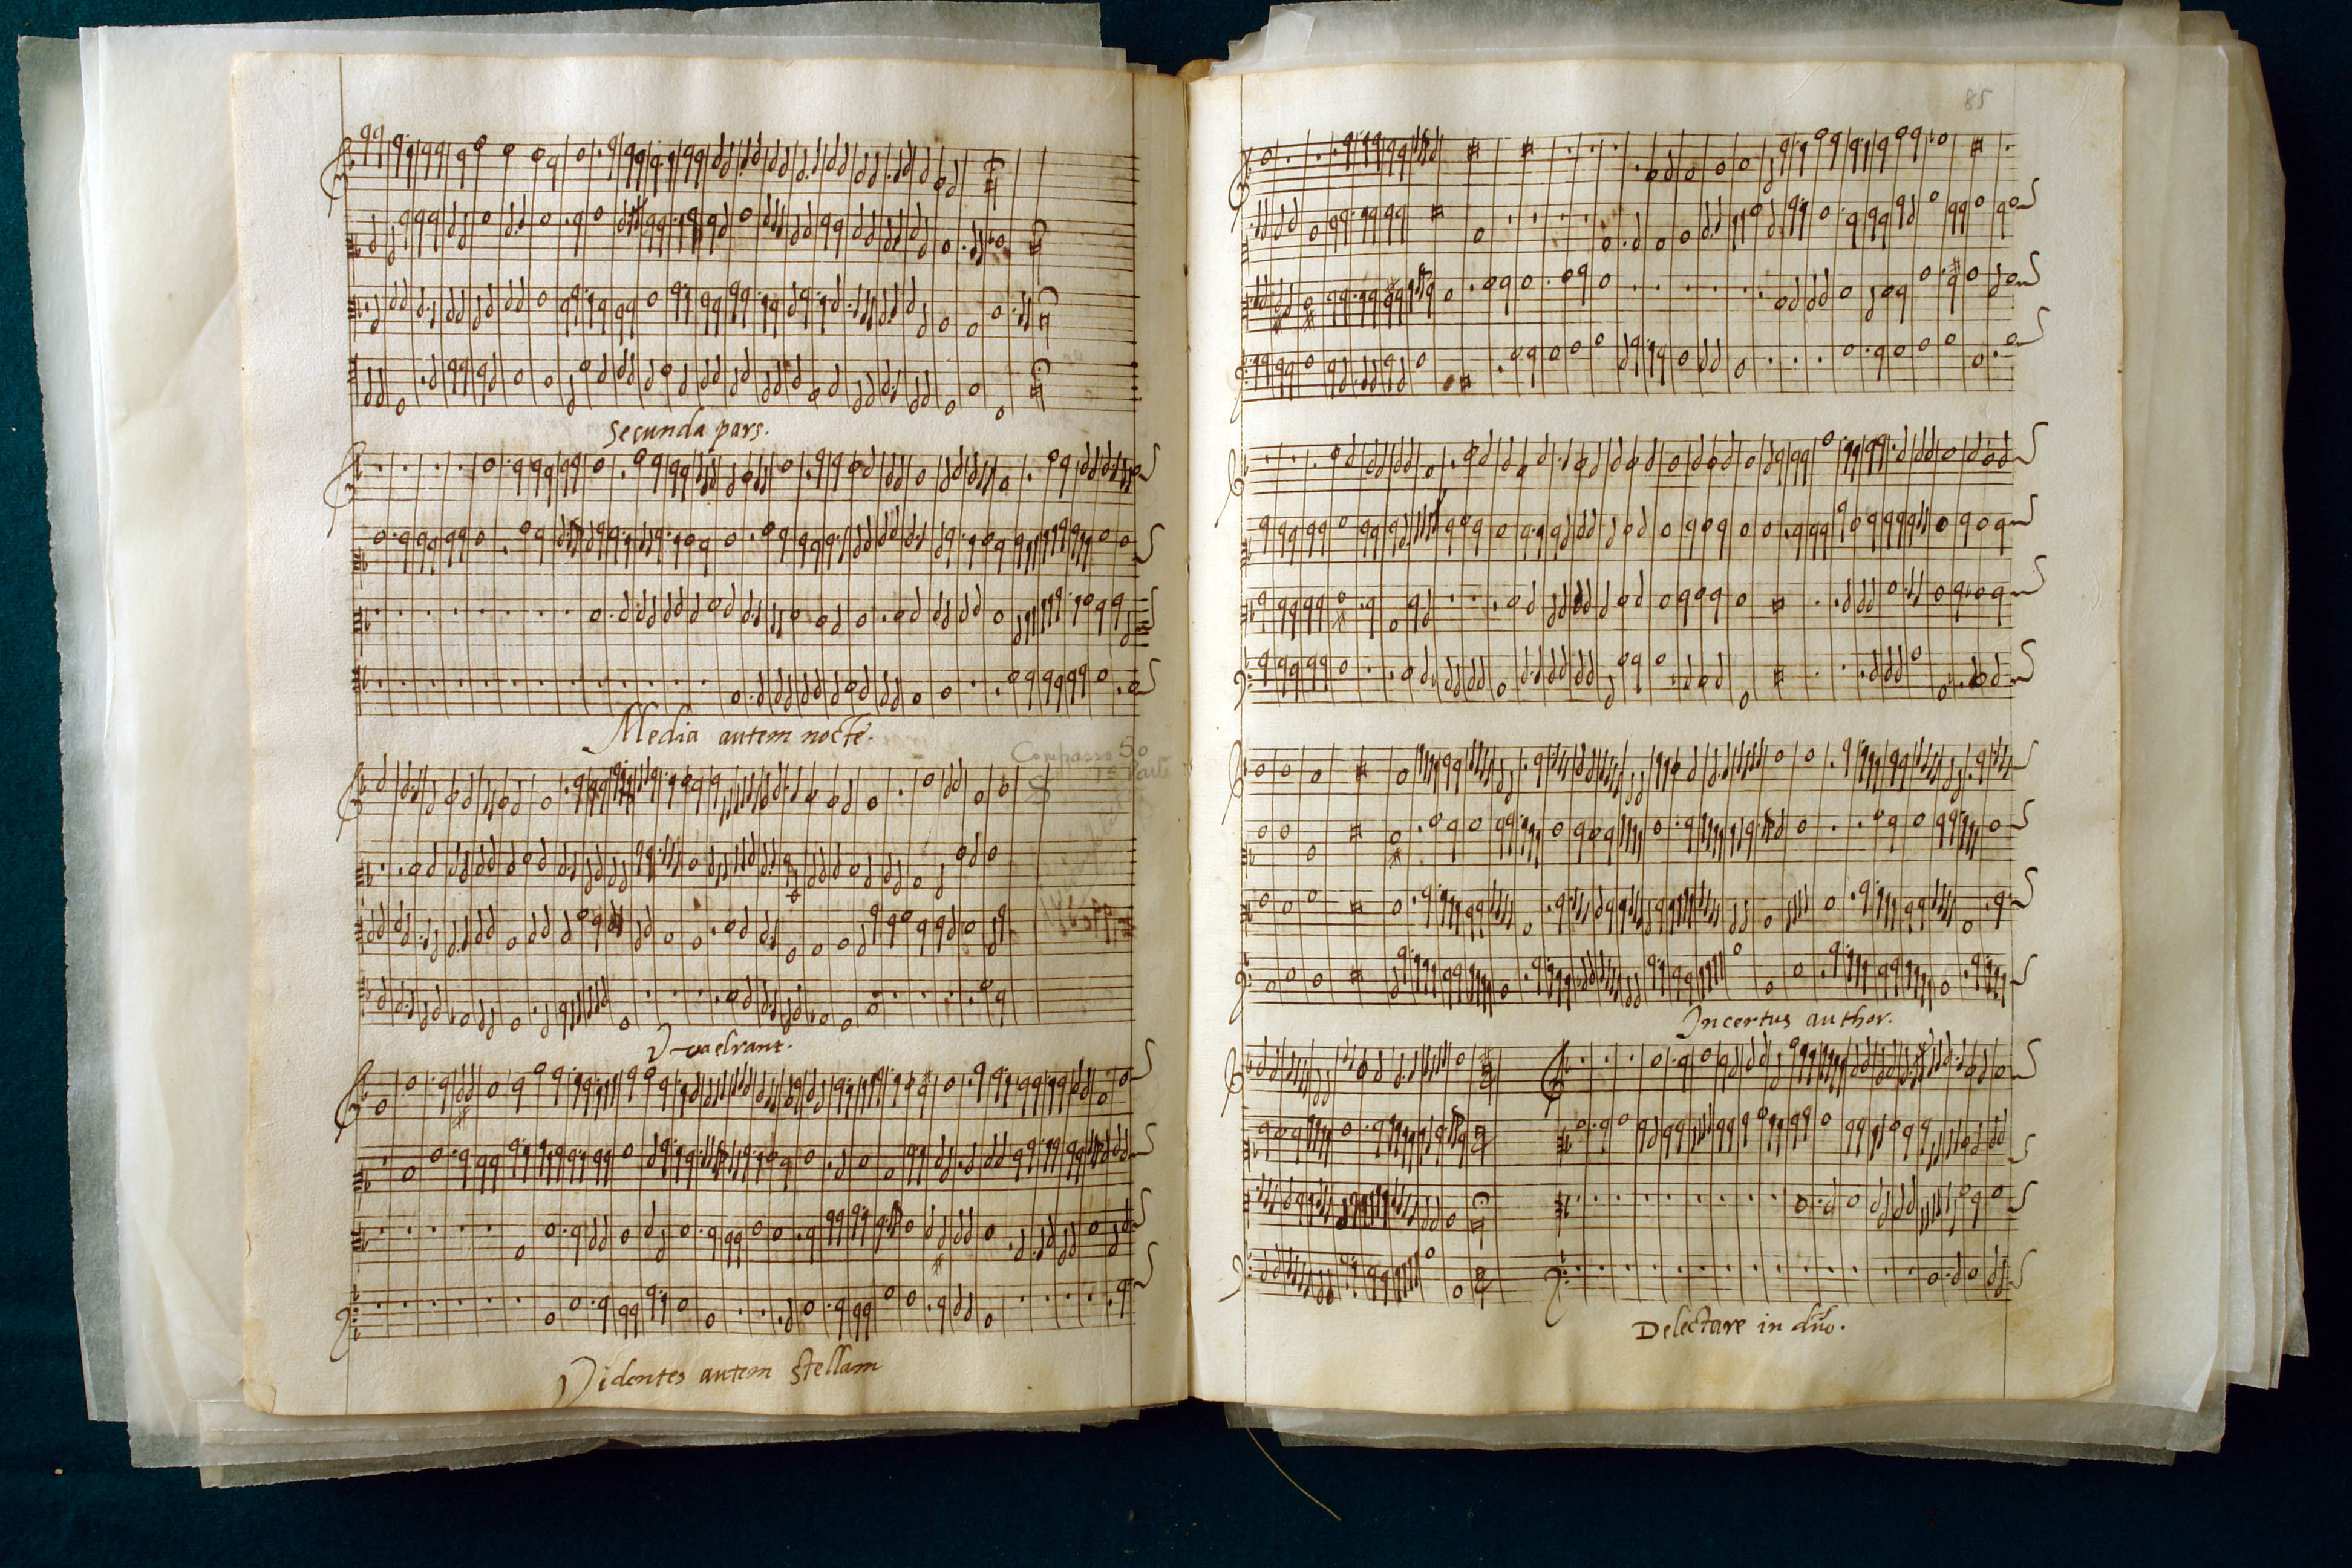 Secunda pars.
Media autem nocte.
Compasso 50
1ª Parte
Vvaelrant.
Videntes autem stellam
85
Incertus author.
Delectare in dño.